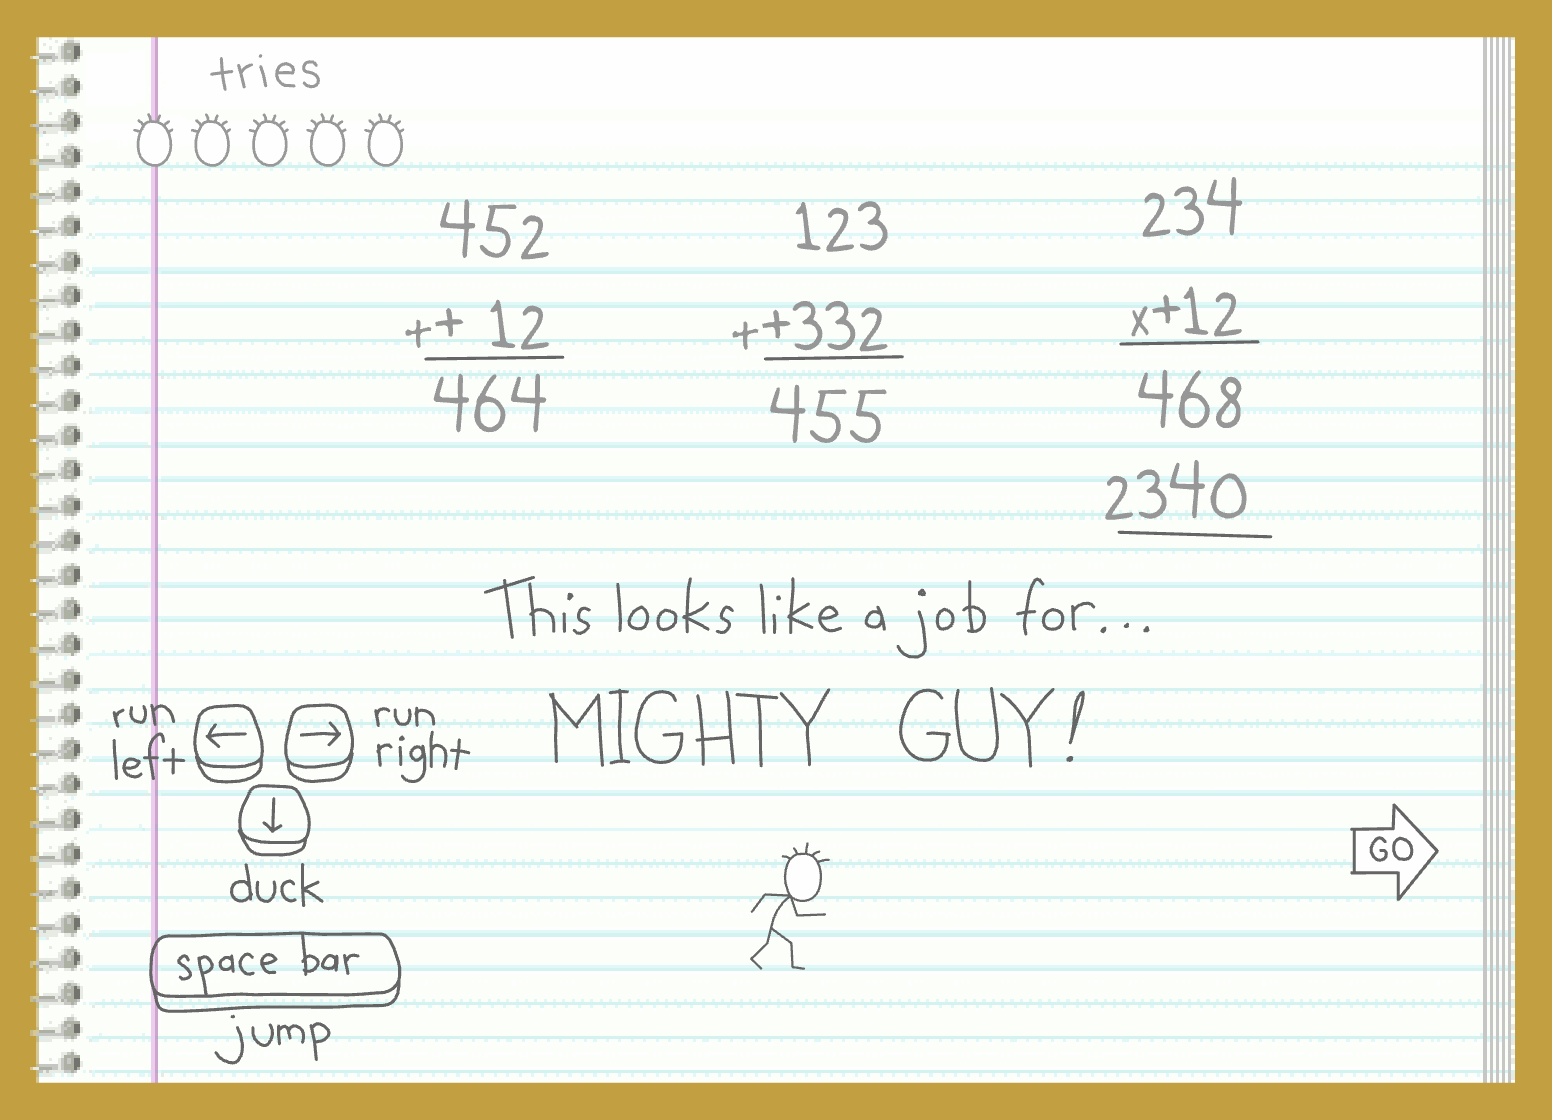 tries
452
++ 12
464
123
++332
455
234
x+12
468
2340
This looks like a job for...
MIGHTY GUY!
run left
← →
run right
↓
duck
space bar
jump
GO